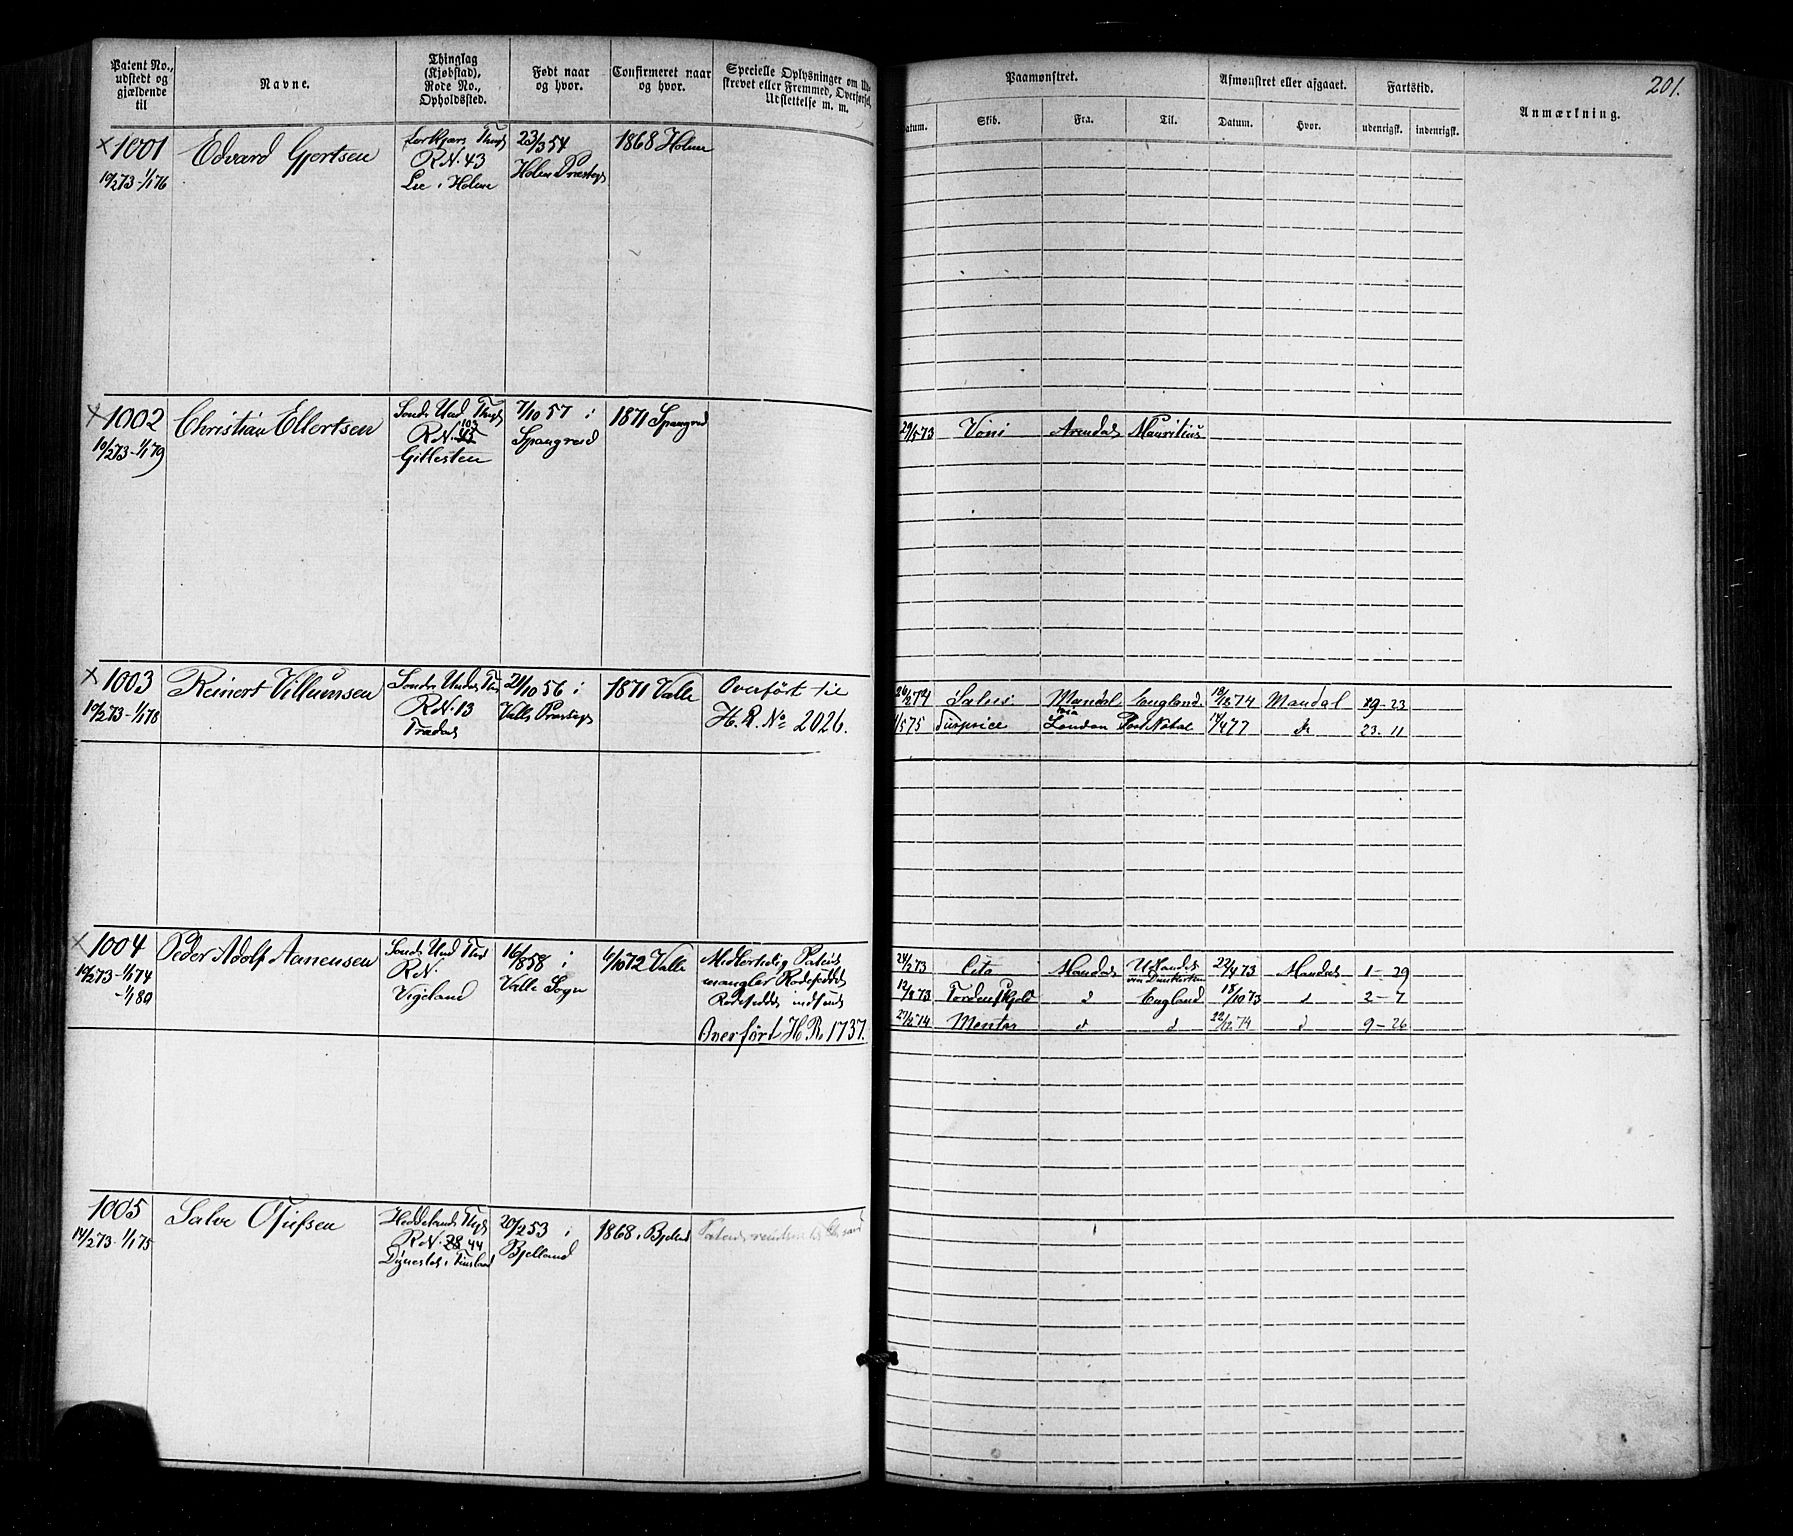 201.
Patent No., udstedt og gjældende til
Navne.
Thinglag (Kjøbstad), Rode No., Opholdssted.
Født naar og hvor.
Confirmeret naar og hvor.
Specielle Oplysninger om Ud-
skrevet eller Fremmed, Overførsel,
Udslettelse m. m.
Paamønstret.
Afmønstret eller afgaaet.
Fartstid.
Anmærkning.
Datum.
Skib.
Fra.
Til.
Datum.
Hvor.
udenrigsk.
indenrigsk.
× 1001
10/2 73 - 1/1 76
Edvard Gjertsen
R.N. 43
Lie i Holme
23/3 54
Holme Præstegj
1868 Holme
× 1002
10/2 73 - 1/1 79
Christian Ellertsen
Sondr Und Thgl
R.N. 45 103
Gitlesten
7/10 57 i
Spangreid
1871 Spangrd
29/5 73
Arendal
Mauritius
× 1003
10/2 73 - 1/1 78
Reinert Villumsen
Sondr Undr Thl
R.N. 13
21/10 56 i
Valle Præstegj
1871 Valle
Overført til
H. R. No 2026.
26/2 74
Mandal
England.
19/12 74
Mandal
19 - 23
/5 75
Surprice
London
Port Natal
17/4 77
23 - 11
× 1004
10/2 73 - 1/1 74
- 1/1 80
Peder Adolf Aanensen
Sondr Und Thl
R.N.
Vigeland
16/8 58 i
Valle Sogn
6/10 72 Valle
Midlertidig Patent
mangler Rodeseddel
Rodeseddel indsendt
Overført H. R. 1737.
24/2 73
Cito
Mandal
Udlandet
via Dunkerken
22/4 73
Mandal
1 - 29
12/8 73
Tordenskjold
d
England
18/10 73
d
2 - 7
27/2 74
Mentor
d
d
22/12 74
d
9 - 26
1005
14/2 73 - 1/1 75
Salve Olufsen
Heddelands Thgl
R.N. 28 44
20/2 53 i
Bjelland
1868 i Bjelland